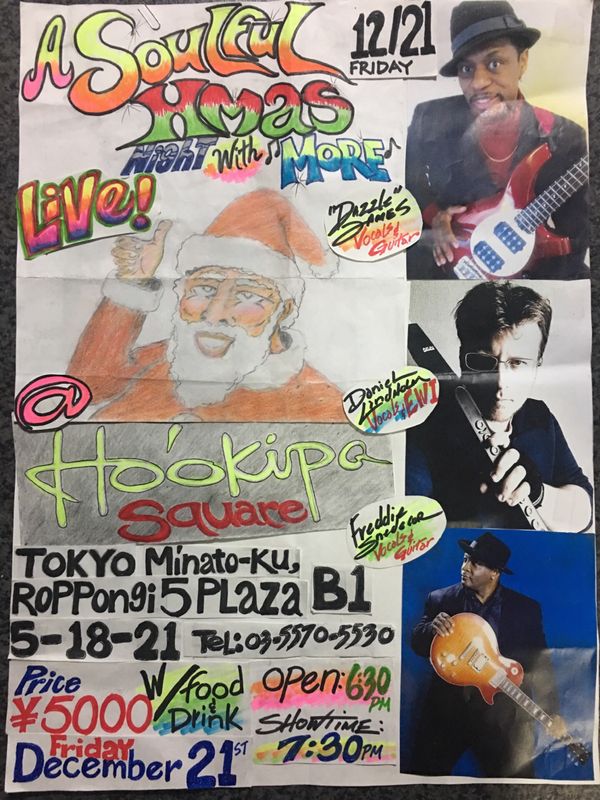 A Soulful
Xmas
Night With MORE
12/21
FRIDAY
Live!
"Dazzle"
James
Vocals &
Guitar
@
Daniel
Vocals, EWI
Ho'okipa
Square
Freddie
Vocals &
Guitar
TOKYO Minato-Ku,
Roppongi 5 Plaza B1
5-18-21 Tel: 03-5570-5530
Price
¥5000
W/food
& Drink
OPEN: 6:30
PM
SHOWTIME:
7:30 PM
Friday
December 21ST